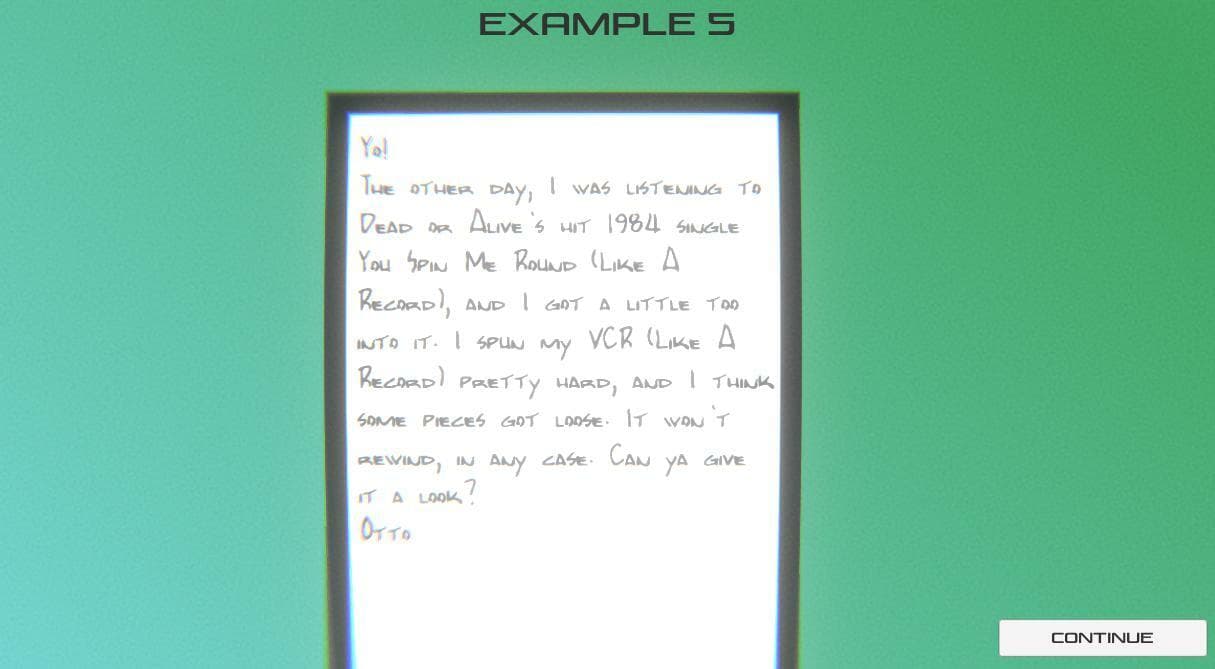 EXAMPLE 5
Yo!
The other day, I was listening to
Dead or Alive's hit 1984 single
You Spin Me Round (Like A
Record), and I got a little too
into it. I spun my VCR (Like A
Record) pretty hard, and I think
some pieces got loose. It won't
rewind, in any case. Can ya give
it a look?
Otto
CONTINUE